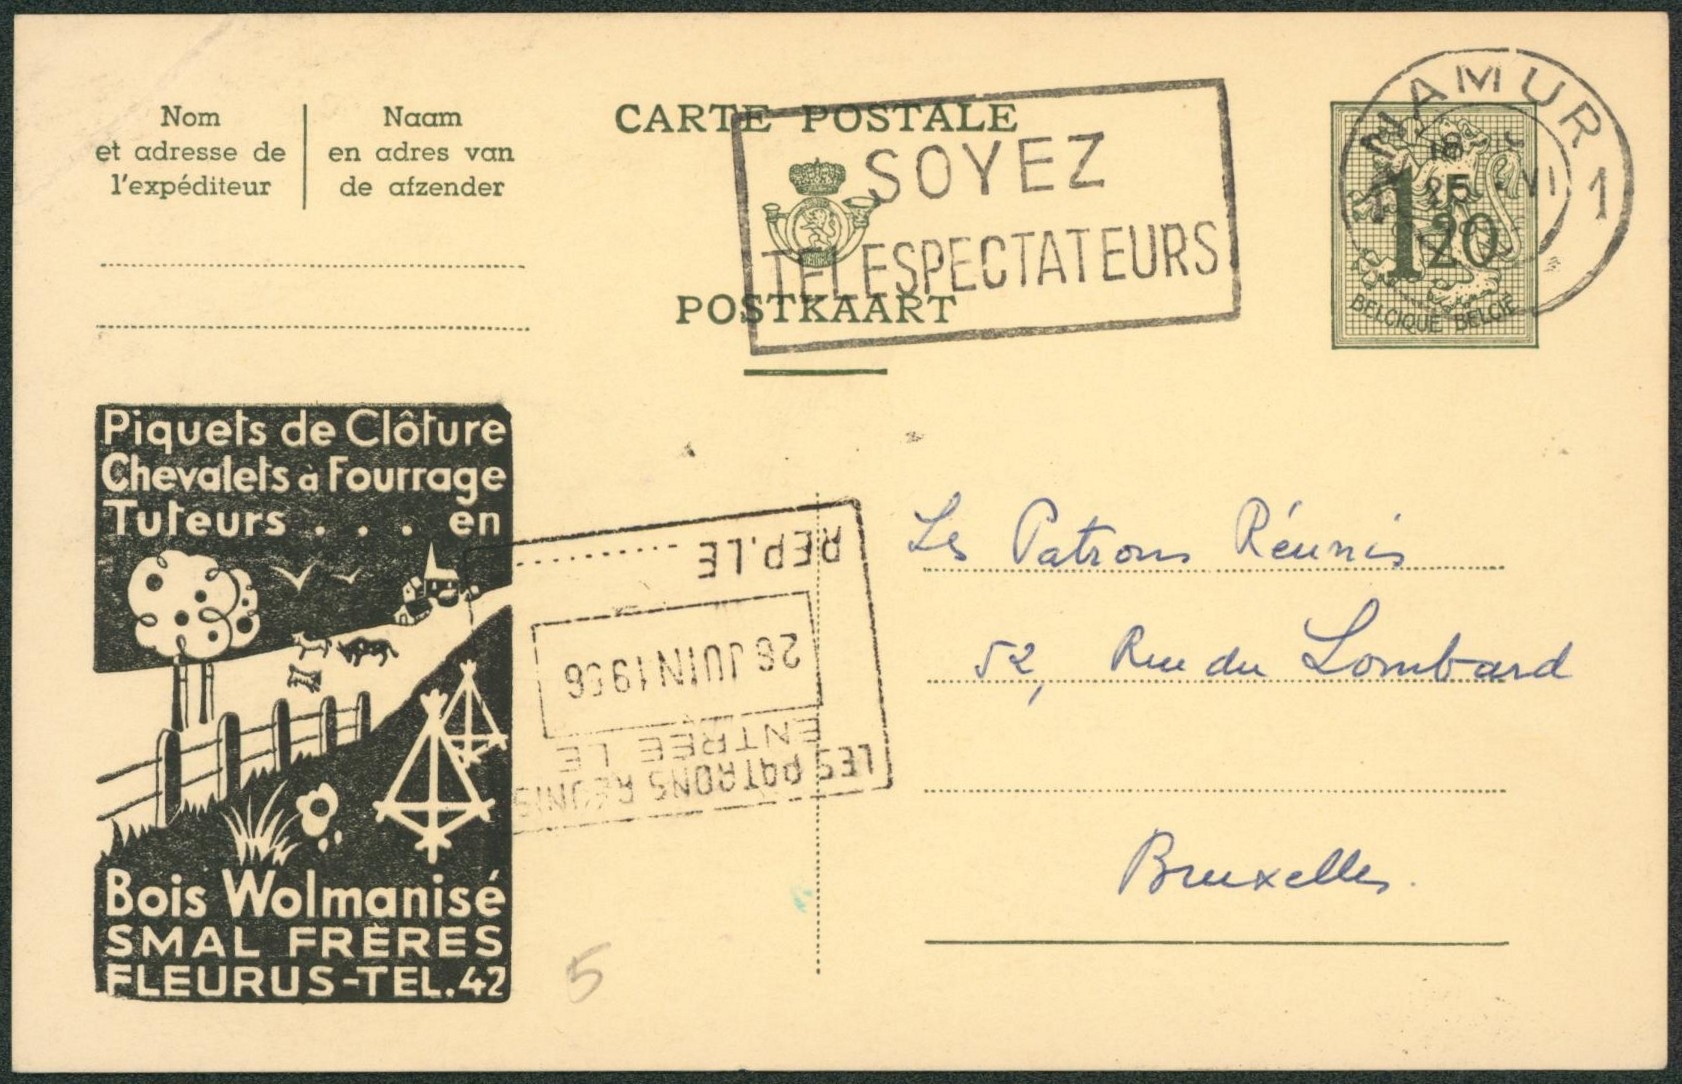 Nom
et adresse de
l'expéditeur
Naam
en adres van
de afzender
CARTE POSTALE
POSTKAART
SOYEZ
TELESPECTATEURS
NAMUR 1
18
25 VI
1 20
BELGIQUE BELGIË
Piquets de Clôture
Chevalets à Fourrage
Tuteurs . . . en
Bois Wolmanisé
SMAL FRÈRES
FLEURUS-TEL.42
LES PATRONS RÉUNIS
ENTRÉE LE
26 JUIN 1956
REP. LE ..........
Les Patrons Réunis
52, Rue du Lombard
Bruxelles.
5